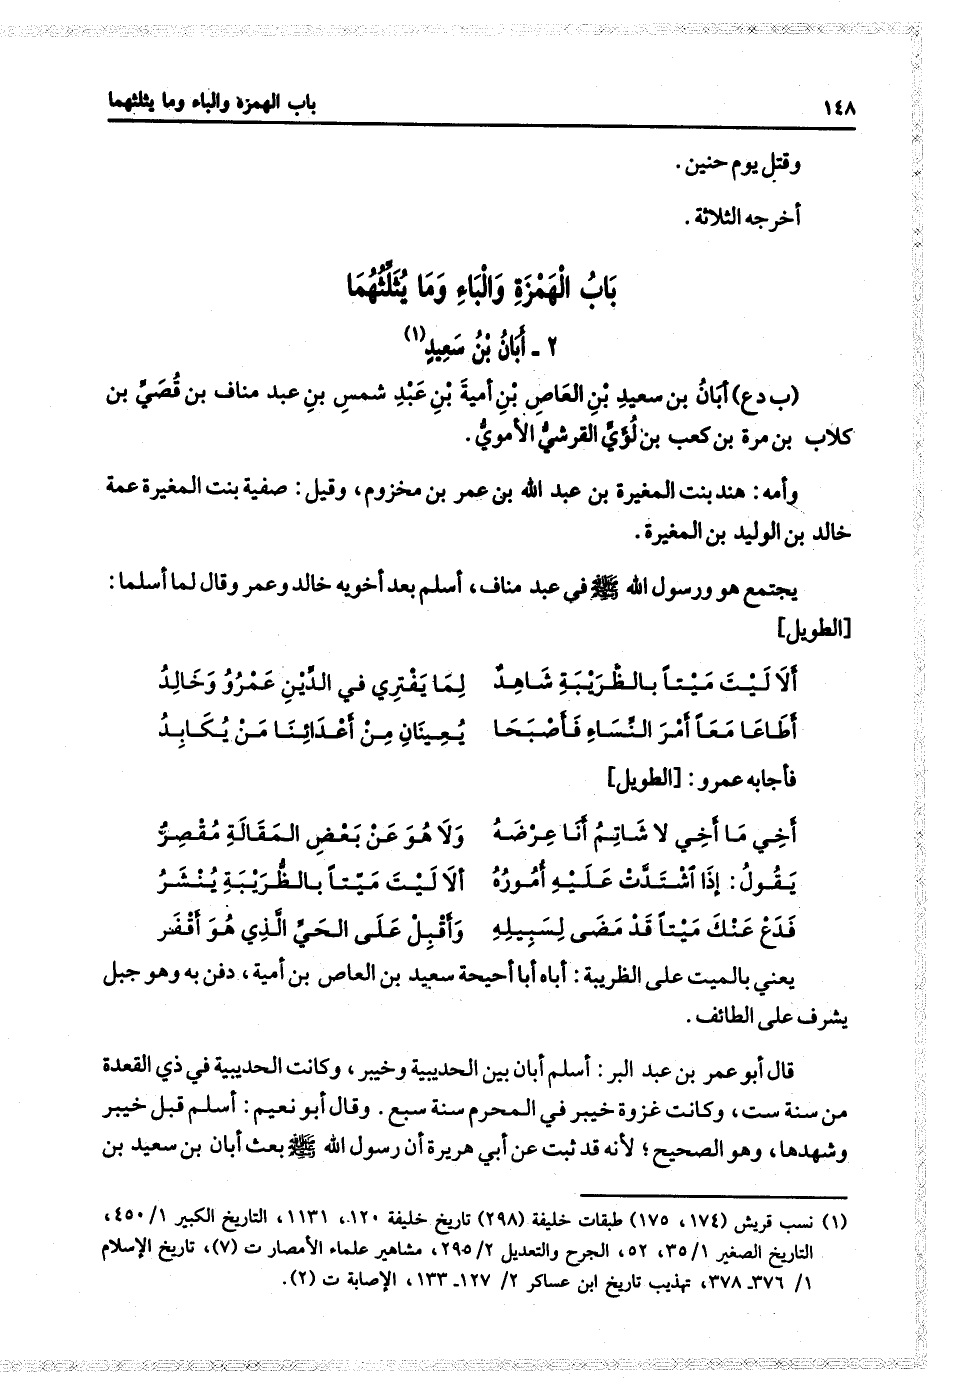 ١٤٨ باب الهمزة والباء وما يثلثهما
وقتل يوم حنين.
أخرجه الثلاثة.
بَابُ الْهَمْزَةِ وَالْبَاءِ وَمَا يُثَلِّثُهُمَا
٢ ـ أَبَانُ بْنُ سَعِيدٍ(١)
(ب دع) أبَانُ بن سعيدِ بْنِ العَاصِ بْنِ أميةَ بْنِ عَبْدِ شمسِ بنِ عبد مناف بن قُصَيِّ بن
كلاب بن مرة بن كعب بن لُؤَيِّ القرشيُّ الأمويُّ.
وأمه: هند بنت المغيرة بن عبد الله بن عمر بن مخزوم، وقيل: صفية بنت المغيرة عمة
خالد بن الوليد بن المغيرة.
يجتمع هو ورسول الله ﷺ في عبد مناف، أسلم بعد أخويه خالد وعمر وقال لما أسلما:
[الطويل]
أَلَا لَيْتَ مَيْتاً بالظُّرَيْبَةِ شَاهِدٌ لِمَا يَفْتَرِي في الدِّينِ عَمْرُوُ وَخَالِدُ
أَطَاعَا مَعَاً أَمْرَ النِّسَاءِ فَأَصْبَحَا يُعِينَانِ مِنْ أَعْدَائِنَا مَنْ يُكَابِدُ
فأجابه عمرو: [الطويل]
أَخِي مَا أَخِي لا شَاتِمٌ أَنَا عِرْضَهُ وَلَا هُوَ عَنْ بَعْضِ المَقَالَةِ مُقْصِرُ
يَقُولُ: إذَا اشْتَدَّتْ عَلَيْهِ أُمُورُهُ ألَا لَيْتَ مَيْتاً بالظُّرَيْبَةِ يُنْشَرُ
فَدَعْ عَنْكَ مَيْتاً قَدْ مَضَى لِسَبِيلِهِ وَأَقْبِلْ عَلَى الحَيِّ الَّذِي هُوَ أَقْفَر
يعني بالميت على الظريبة: أباه أبا أحيحة سعيد بن العاص بن أمية، دفن به وهو جبل
يشرف على الطائف.
قال أبو عمر بن عبد البر: أسلم أبان بين الحديبية وخيبر، وكانت الحديبية في ذي القعدة
من سنة ست، وكانت غزوة خيبر في المحرم سنة سبع. وقال أبو نعيم: أسلم قبل خيبر
وشهدها، وهو الصحيح؛ لأنه قد ثبت عن أبي هريرة أن رسول الله ﷺ بعث أبان بن سعيد بن
(١) نسب قريش (١٧٤، ١٧٥) طبقات خليفة (٢٩٨) تاريخ خليفة ١٢٠، ١١٣١، التاريخ الكبير ١/ ٤٥٠،
التاريخ الصغير ١/ ٣٥، ٥٢، الجرح والتعديل ٢/ ٢٩٥، مشاهير علماء الأمصار ت (٧)، تاريخ الإسلام
١/ ٣٧٦ـ ٣٧٨، تهذيب تاريخ ابن عساكر ٢/ ١٢٧ـ ١٣٣، الإصابة ت (٢).